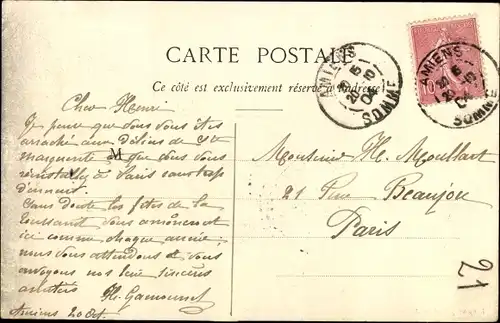 CARTE POSTALE
Ce côté est exclusivement réservé à l'adresse
AMIENS
SOMME
AMIENS
SOMME
10
Cher Henri
Je pense que vous vous êtes
arraché aux délices de Ste
marguerite M que vous vous
réinstallez à Paris sans trop
d'ennui.
Sans doute les fêtes de la
Toussaint vous amèneront
ici comme chaque année;
nous vous attendons et vous
envoyons nos bien sincères
amitiés
Amiens 20 Oct.
Monsieur H. Moullart
21 Rue Beaujon
Paris
21